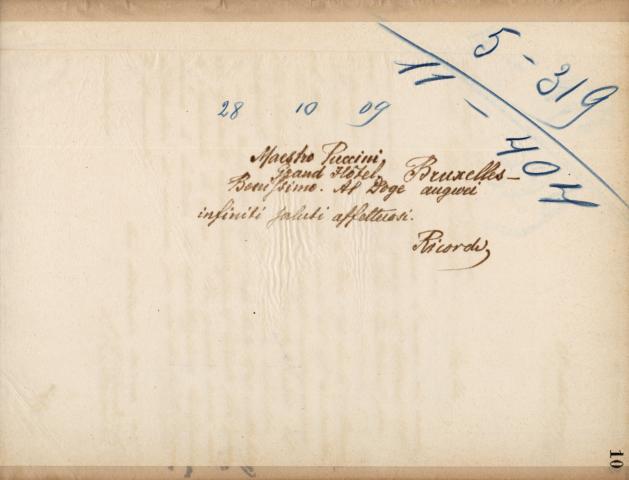 5-319
11-404
28 10 09
Maestro Puccini
Grand Hôtel Bruxelles-
Benissimo. Al Doge auguri
infiniti saluti affettuosi.
Ricordi
10